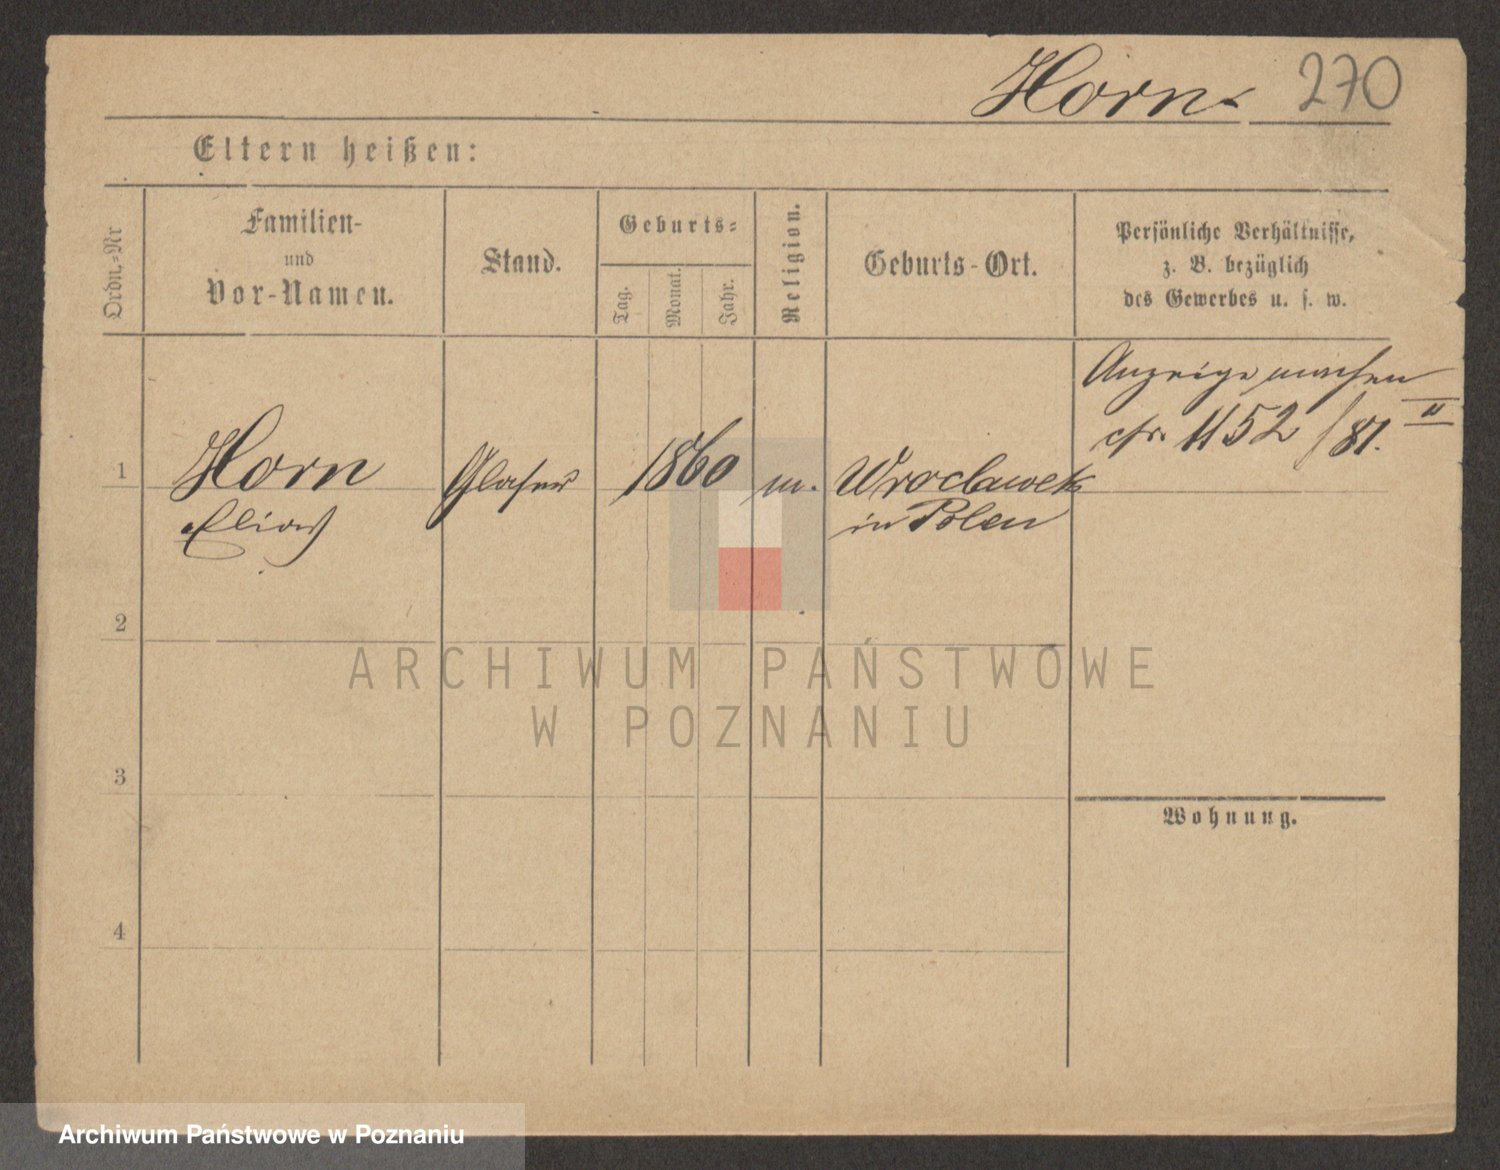 Horn. 270
Eltern heißen:
Ordn.-Nr
Familien-
und
Vor-Namen.
Stand.
Geburts-
Tag.
Monat.
Jahr.
Religion.
Geburts-Ort.
Persönliche Verhältnisse,
z. B. bezüglich
des Gewerbes u. s. w.
Anzeige machen
cfr. 1152/81. II
1 Horn Glaser 1860 m. Wroclawek
Elias in Polen
2
ARCHIWUM PAŃSTWOWE
W POZNANIU
3
Wohnung.
4
Archiwum Państwowe w Poznaniu